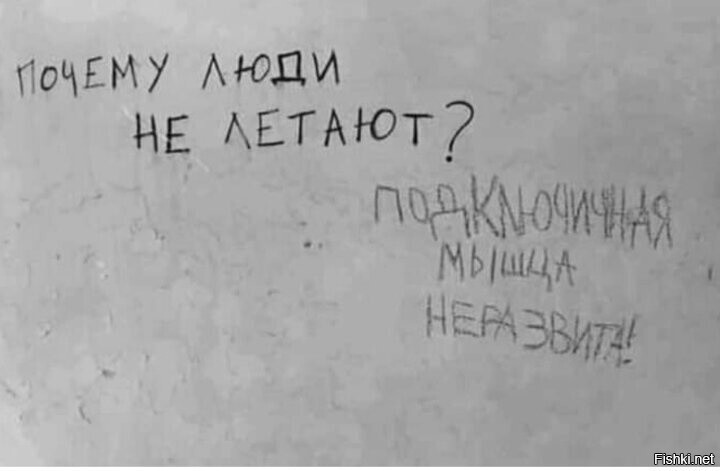 ПОЧЕМУ ЛЮДИ
НЕ ЛЕТАЮТ?
ПОДКЛЮЧИЧНАЯ
МЫШЦА
НЕРАЗВИТА!
Fishki.net